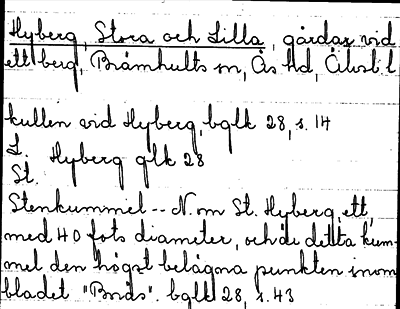 Hyberg, Stora och Lilla, gårdar vid
ett berg, Brämhults sn, Ås hd, Älvsb. l
kullen vid Hyberg, bglk 28, s. 14
L.
Hyberg glk 28
St.
Stenkummel -- N. om St. Hyberg, ett,
med 40 fots diameter, och är detta kum-
mel den högst belägna punkten inom
bladet "Borås". bglk 28, s. 43